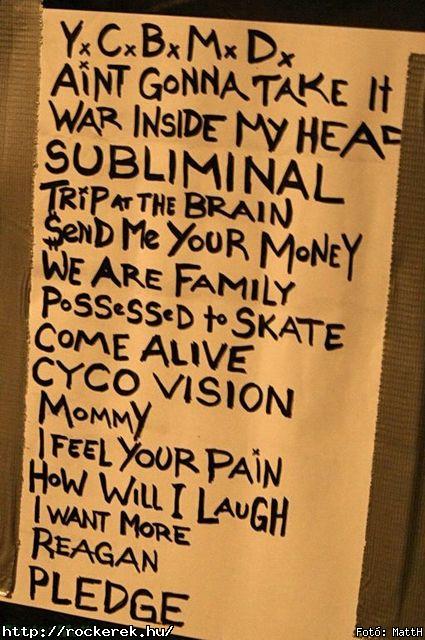 Y.C.B.M.D.
AiNT GONNA TAKE IT
WAR INSIDE MY HEAD
SUBLIMINAL
TRiP AT THE BRAIN
$END Me YOUR MONEY
WE ARE FAMILY
POSSeSSeD to SKATE
COME ALIVE
CYCO VISION
MOMMY
I FEEL YOUR PAiN
HOW WiLL I LAUGH
I WANT MORE
REAGAN
PLEDGE
http://rockerek.hu/
Fotó: MattH